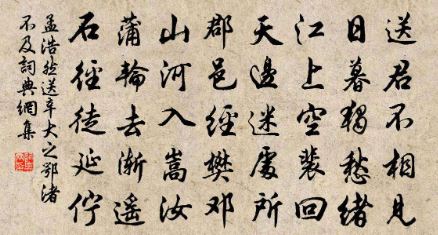 送君不相見
日暮獨愁緒
江上空裴回
天邊迷處所
郡邑經樊邓
山河入嵩汝
蒲輪去漸遥
石徑徒延佇
孟浩然送辛大之鄂渚
不及詞典網集